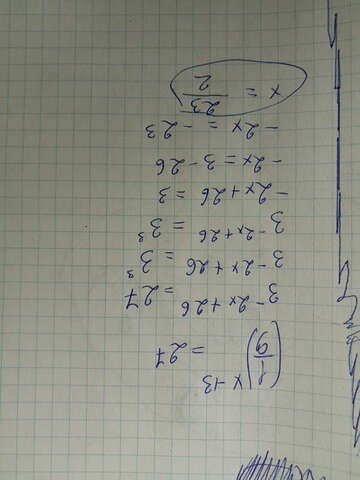 (1/9)^x-13 = 27
3^-2x+26 = 27
3^-2x+26 = 3^3
3^-2x+26 = 3^3
-2x+26 = 3
-2x = 3-26
-2x = -23
x = 23/2